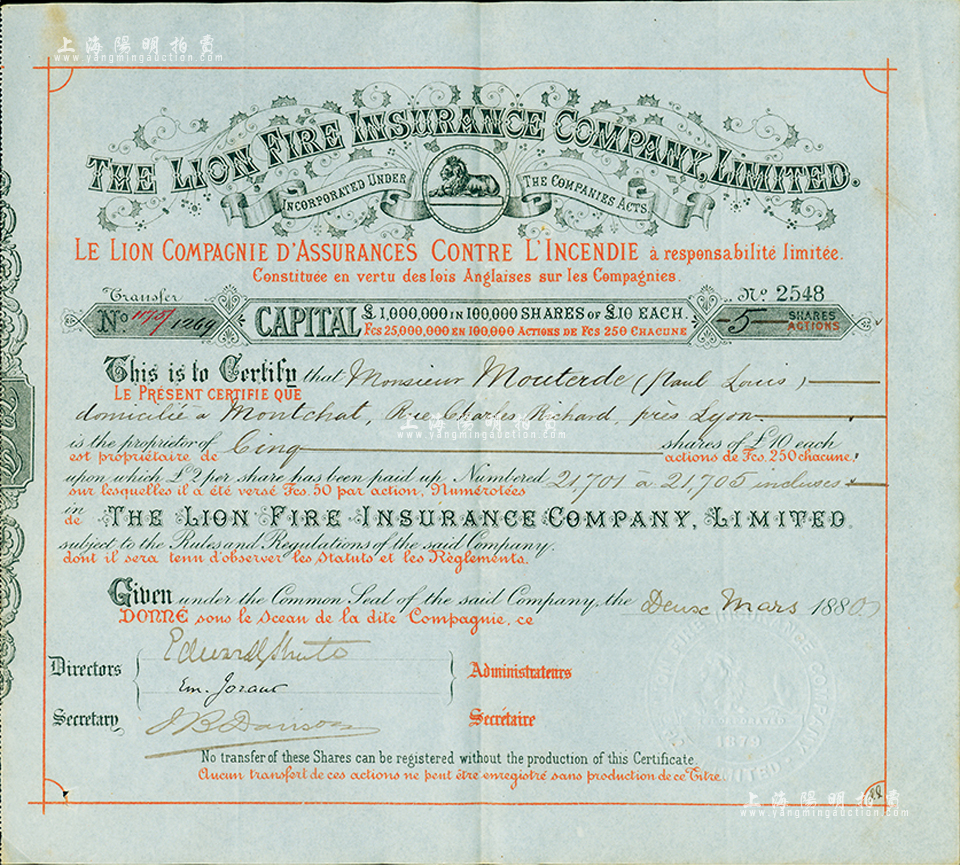 上海陽明拍賣
www.yangmingauction.com
上海陽明拍賣
www.yangmingauction.com
THE LION FIRE INSURANCE COMPANY, LIMITED.
INCORPORATED UNDER THE COMPANIES ACTS
LE LION COMPAGNIE D'ASSURANCES CONTRE L'INCENDIE à responsabilité limitée.
Constituée en vertu des lois Anglaises sur les Compagnies.
Transfer
No 1269
CAPITAL £1,000,000 IN 100,000 SHARES OF £10 EACH.
FCS 25,000,000 EN 100,000 ACTIONS DE FCS 250 CHACUNE
No. 2548
5 SHARES
ACTIONS
This is to Certify that Monsieur Mouterde (Paul Louis)
LE PRÉSENT CERTIFIE QUE
domicilié à Montchat, Rue Charles Richard, près Lyon
is the proprietor of Cinq shares of £10 each
est propriétaire de actions de Fcs. 250 chacune,
上海陽明拍賣
www.yangmingauction.com
upon which £2 per share has been paid up, Numbered 21,701 à 21,705 incluses
sur lesquelles il a été versé Fcs. 50 par action, Numérotées
in THE LION FIRE INSURANCE COMPANY, LIMITED.
de
subject to the Rules and Regulations of the said Company.
dont il sera tenu d'observer les Statuts et les Règlements.
Given under the Common Seal of the said Company, the Deux Mars 1880
DONNÉ sous le Sceau de la dite Compagnie, ce
Directors
Administrateurs
Em. Joraut
Secretary
Secrétaire
LION FIRE INSURANCE COMPANY LIMITED
INCORPORATED
1879
No transfer of these Shares can be registered without the production of this Certificate.
Aucun transfert de ces actions ne peut être enregistré sans production de ce Titre.
上海陽明拍賣
www.yangmingauction.com